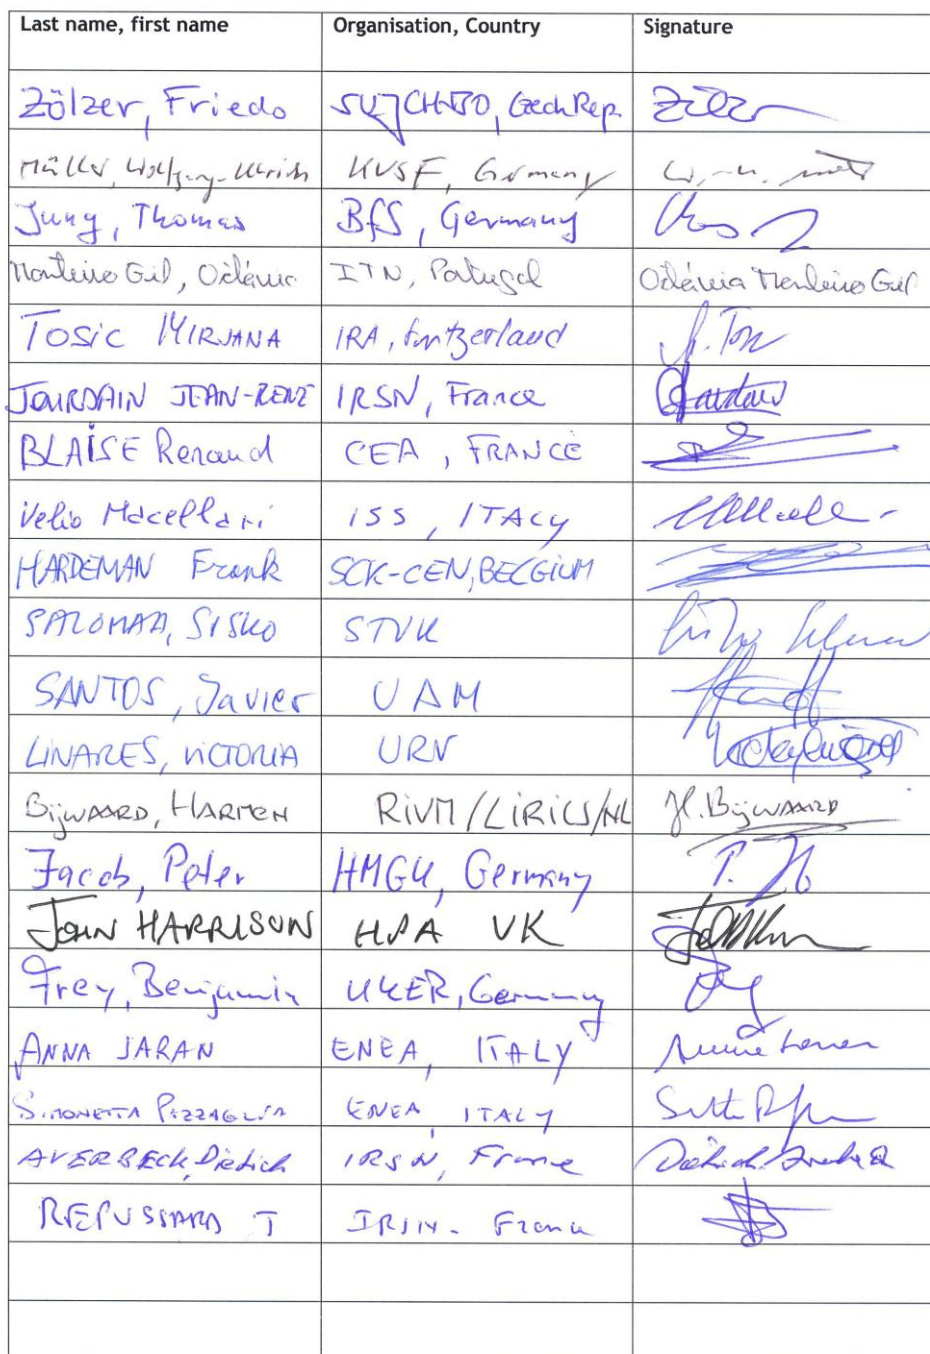 Last name, first name Organisation, Country Signature
Zölzer, Friedo Czech Rep. Zölzer
Müller, Wolfgang-Ulrich Germany
Jung, Thomas BfS, Germany
Monteiro Gil, Octávia ITN, Portugal Octávia Monteiro Gil
TOSIC MIRJANA IRA, Switzerland
JOURDAIN JEAN-RENE IRSN, France
BLAISE Renaud CEA, FRANCE
Velio Macellari ISS, ITALY
HARDEMAN Frank SCK-CEN, BELGIUM
SALOMAA, SISKO STUK
SANTOS, Javier UAM
LINARES, VICTORIA URV
Bijwaard, HARMEN RIVM/LIRICS/NL H. Bijwaard
Jacob, Peter HMGU, Germany
JOHN HARRISON HPA UK
Frey, Benjamin UKER, Germany
ANNA SARAN ENEA, ITALY
SIMONETTA PAZZAGLIA ENEA, ITALY
AVERBECK, Dietrich IRSN, France
REPUSSARD J IRSN - France